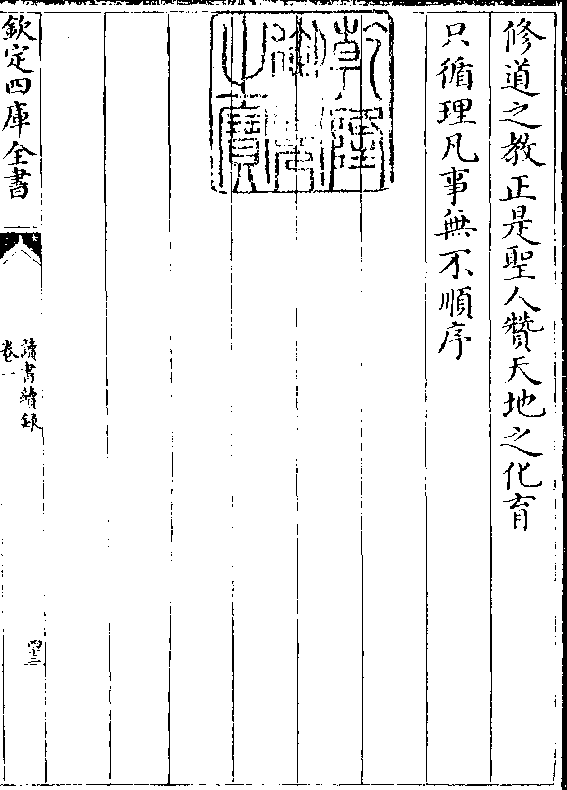 修道之教正是聖人贊天地之化育
只循理凡事無不順序
乾隆御覽之寶
欽定四庫全書
讀書續録
卷一
四十三